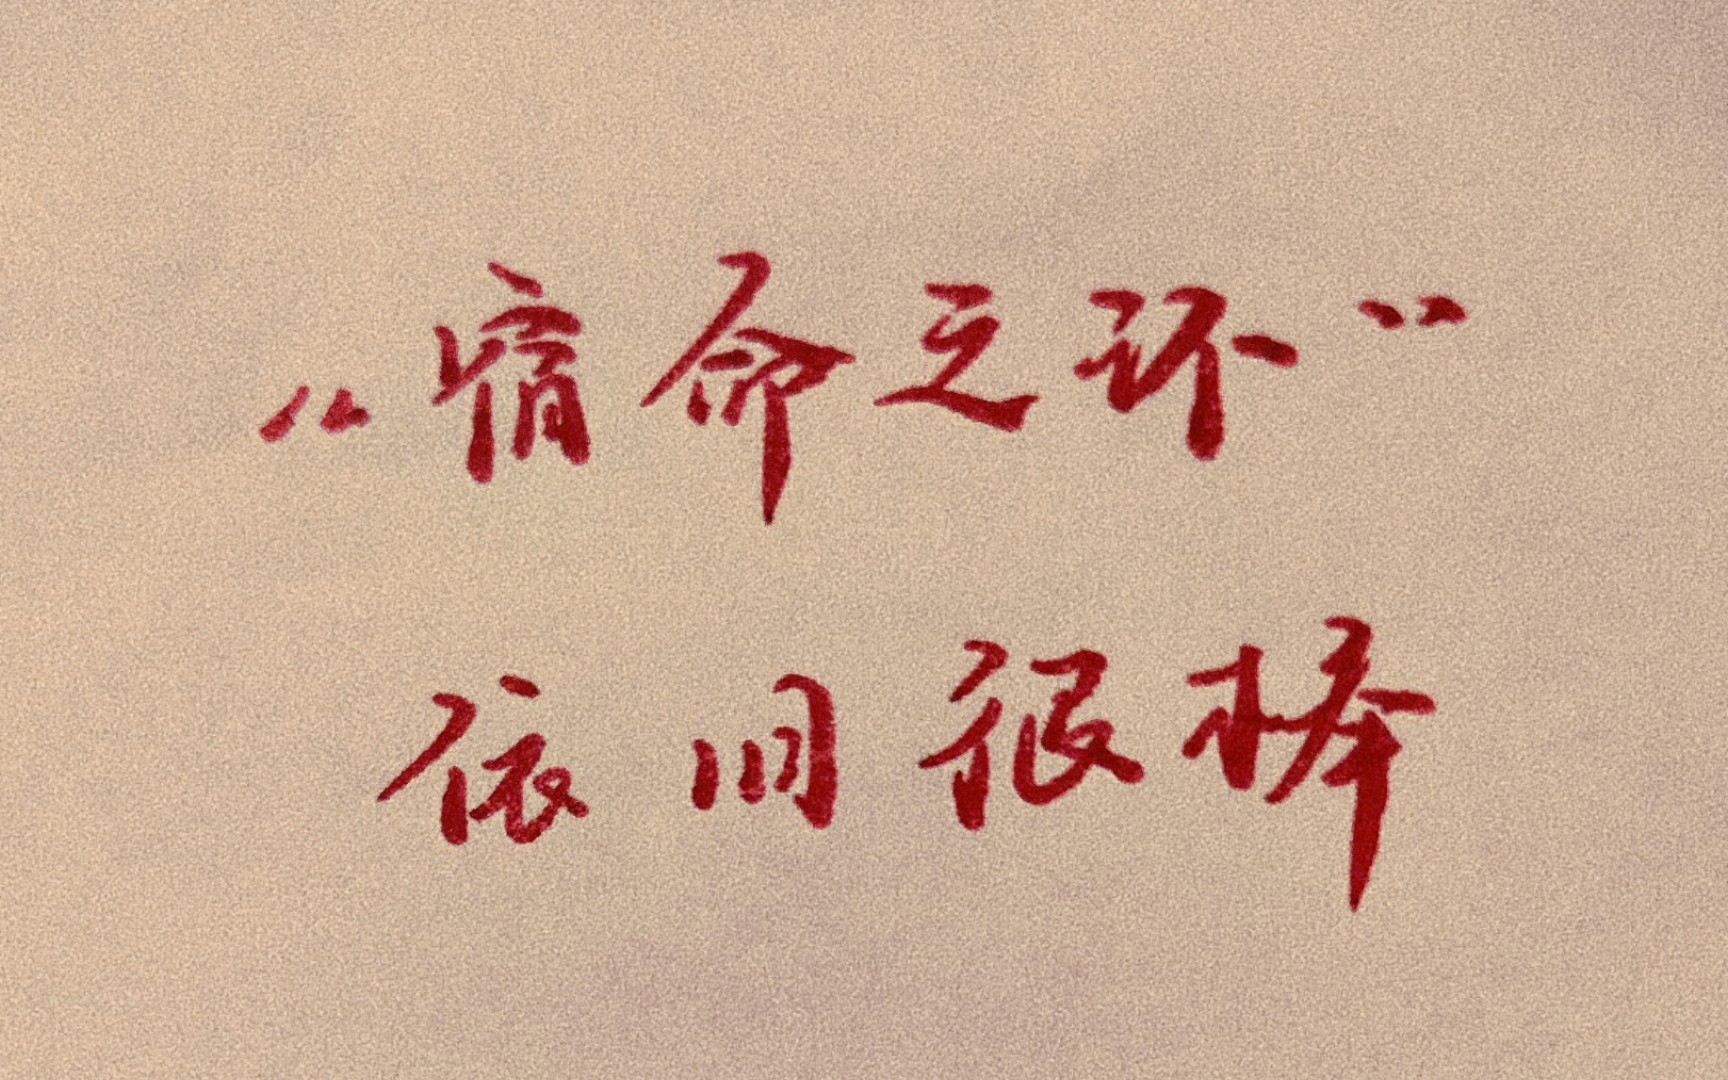 “宿命之环”
依旧很棒